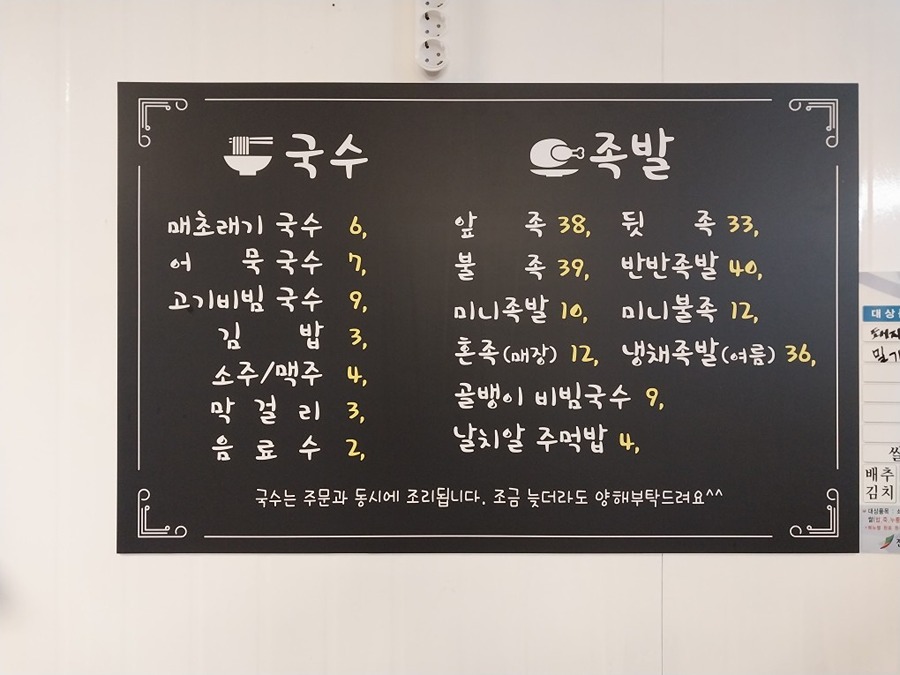 국수
매초래기 국수 6,
어 묵 국수 7,
고기비빔 국수 9,
김 밥 3,
소주/맥주 4,
막 걸 리 3,
음 료 수 2,
족발
앞 족 38, 뒷 족 33,
불 족 39, 반반족발 40,
미니족발 10, 미니불족 12,
혼족(매장) 12, 냉채족발(여름) 36,
골뱅이 비빔국수 9,
날치알 주먹밥 4,
국수는 주문과 동시에 조리됩니다. 조금 늦더라도 양해부탁드려요^^
대상
쌀
배추
김치